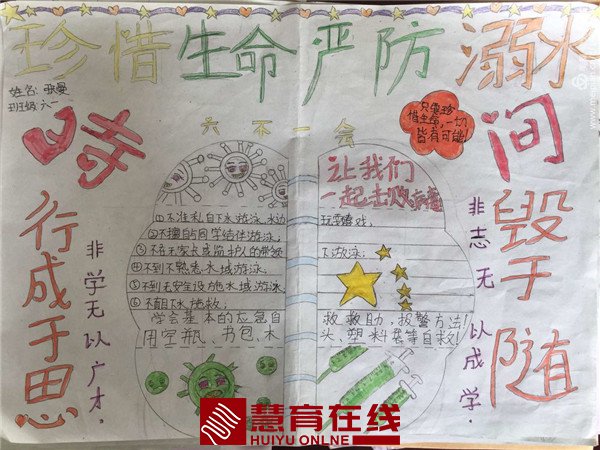 珍惜生命严防溺水
姓名:
班级:六一
六不一会
只要珍
惜生命,一切
皆有可能!
让我们
一起击败病毒
①不准私自下水游泳,水边 玩耍嬉戏,
②不擅自与同学结伴游泳;
③不在无家长或监护人的带领 下游泳;
④不到不熟悉水域游泳
⑤不到无安全设施水域游泳
⑥不 下水施救;
学会基本的应急自 救救助,报警方法!
用空瓶、书包、木 头、塑料袋等自救!
时
行成于思
非学无以广才.
间
毁于随
非志无以成学.
慧育在线
HUIYU ONLINE